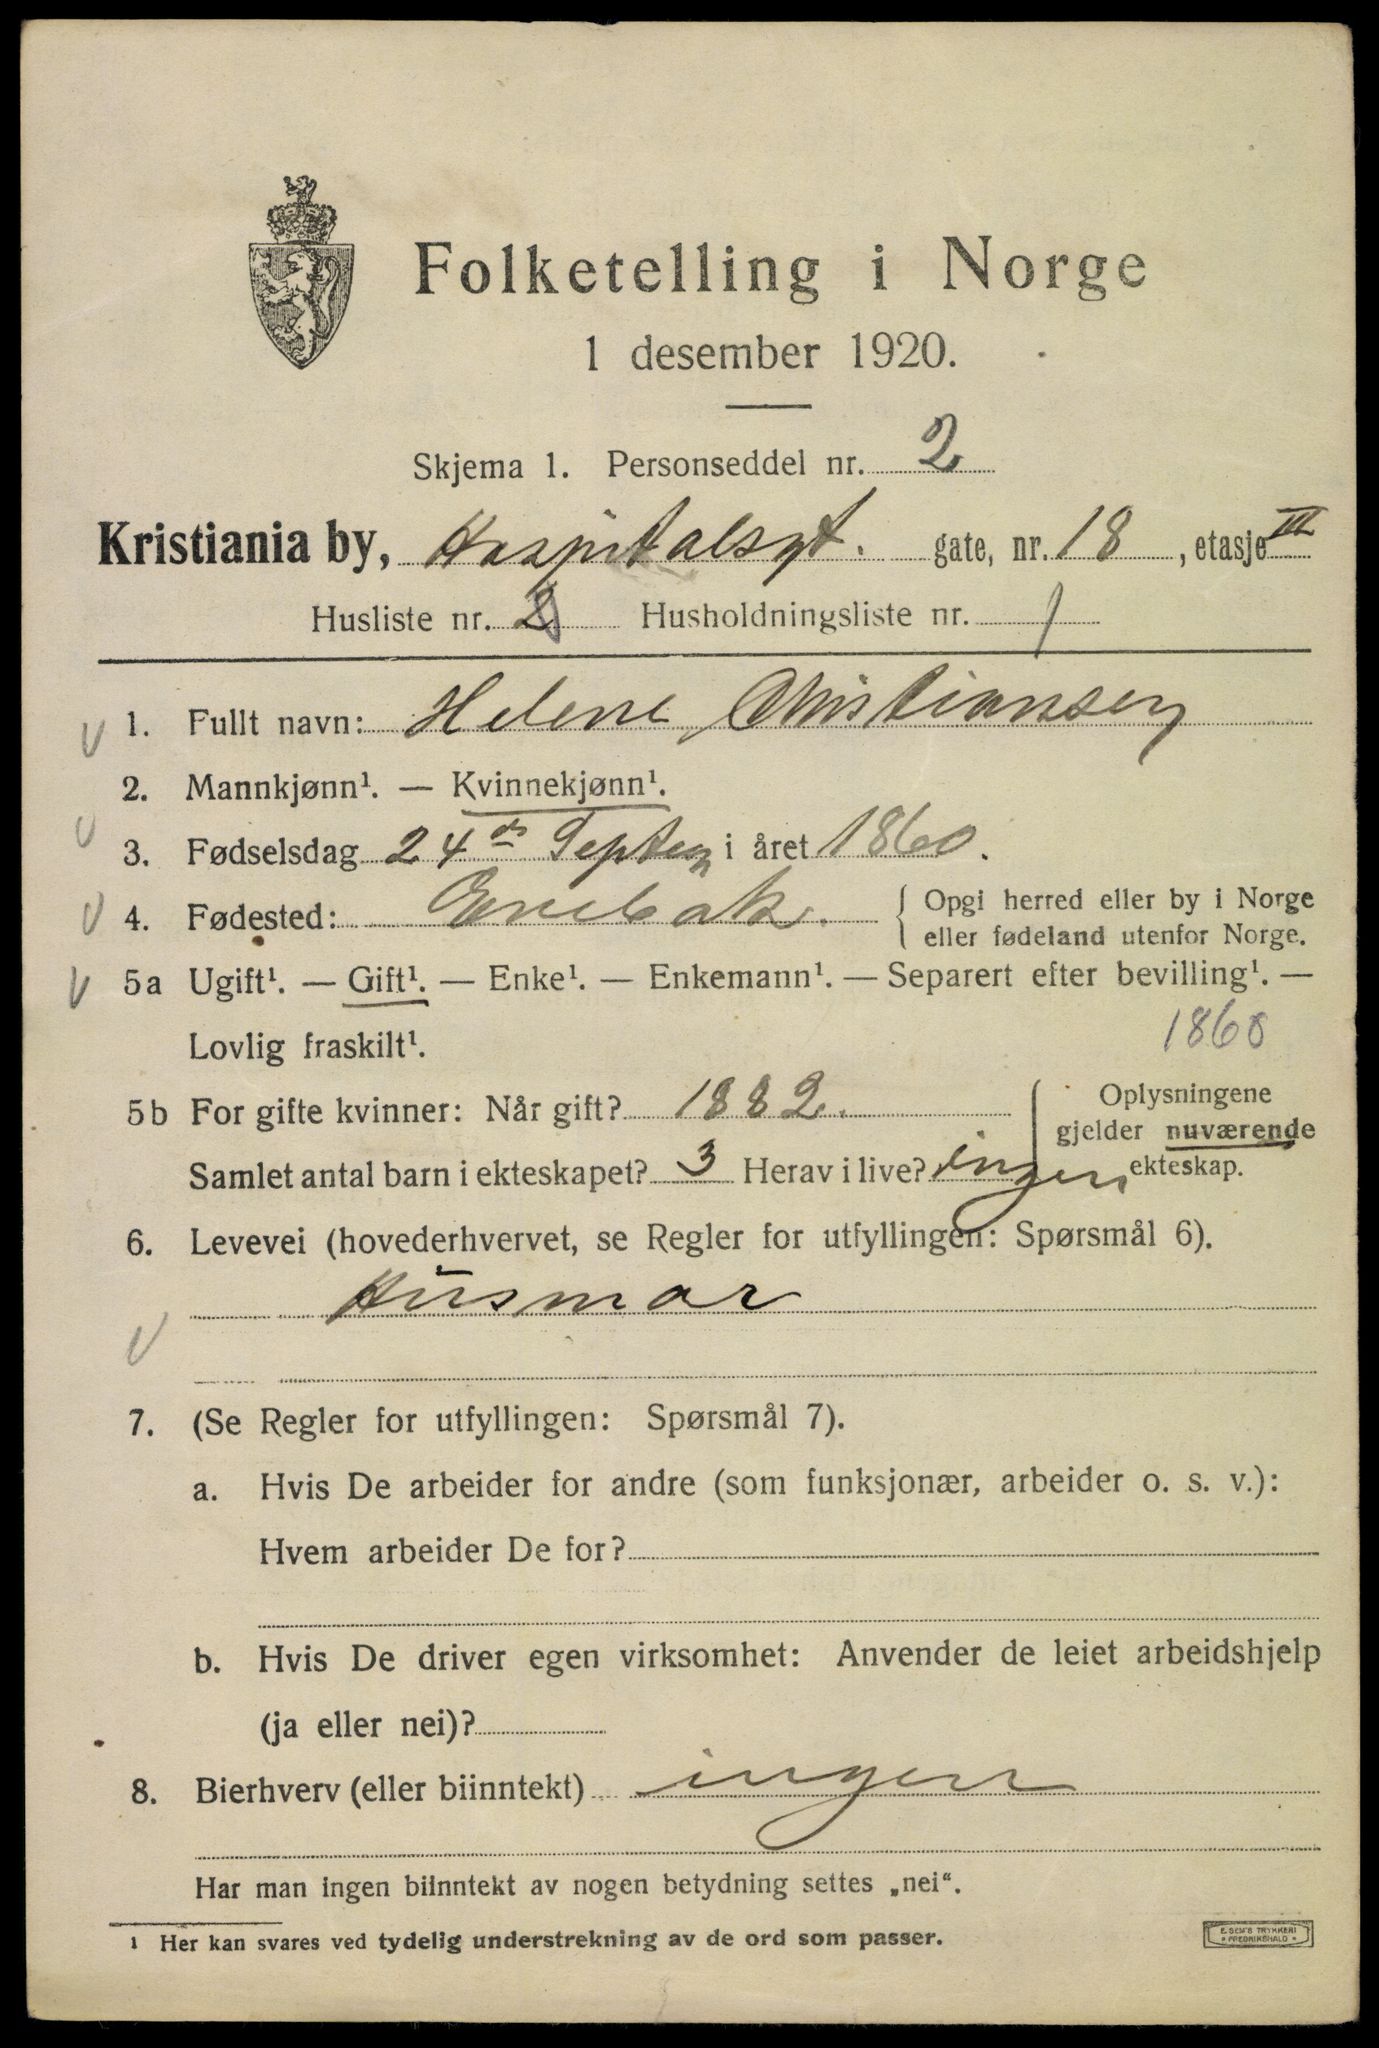 Folketelling i Norge
1 desember 1920.
Skjema 1. Personseddel nr. 2
Kristiania by, Hospitalsgt. gate, nr. 18, etasje III
Husliste nr. 2 Husholdningsliste nr. 1
1. Fullt navn: Helene Christiansen
2. Mannkjønn¹. — Kvinnekjønn¹.
3. Fødselsdag 24de Septem i året 1860.
4. Fødested: Enebak. { Opgi herred eller by i Norge
eller fødeland utenfor Norge.
5a Ugift¹. — Gift¹. — Enke¹. — Enkemann¹. — Separert efter bevilling¹. —
Lovlig fraskilt¹. 1860
5b For gifte kvinner: Når gift? 1882. { Oplysningene
gjelder nuværende
Samlet antal barn i ekteskapet? 3 Herav i live? ingen ekteskap.
6. Levevei (hovederhvervet, se Regler for utfyllingen: Spørsmål 6).
Husmor
7. (Se Regler for utfyllingen: Spørsmål 7).
a. Hvis De arbeider for andre (som funksjonær, arbeider o. s. v.):
Hvem arbeider De for?
b. Hvis De driver egen virksomhet: Anvender de leiet arbeidshjelp
(ja eller nei)?
8. Bierhverv (eller biinntekt) ingen
Har man ingen biinntekt av nogen betydning settes „nei“.
1 Her kan svares ved tydelig understrekning av de ord som passer.
E. SEM'S TRYKKERI
* FREDRIKSHALD *